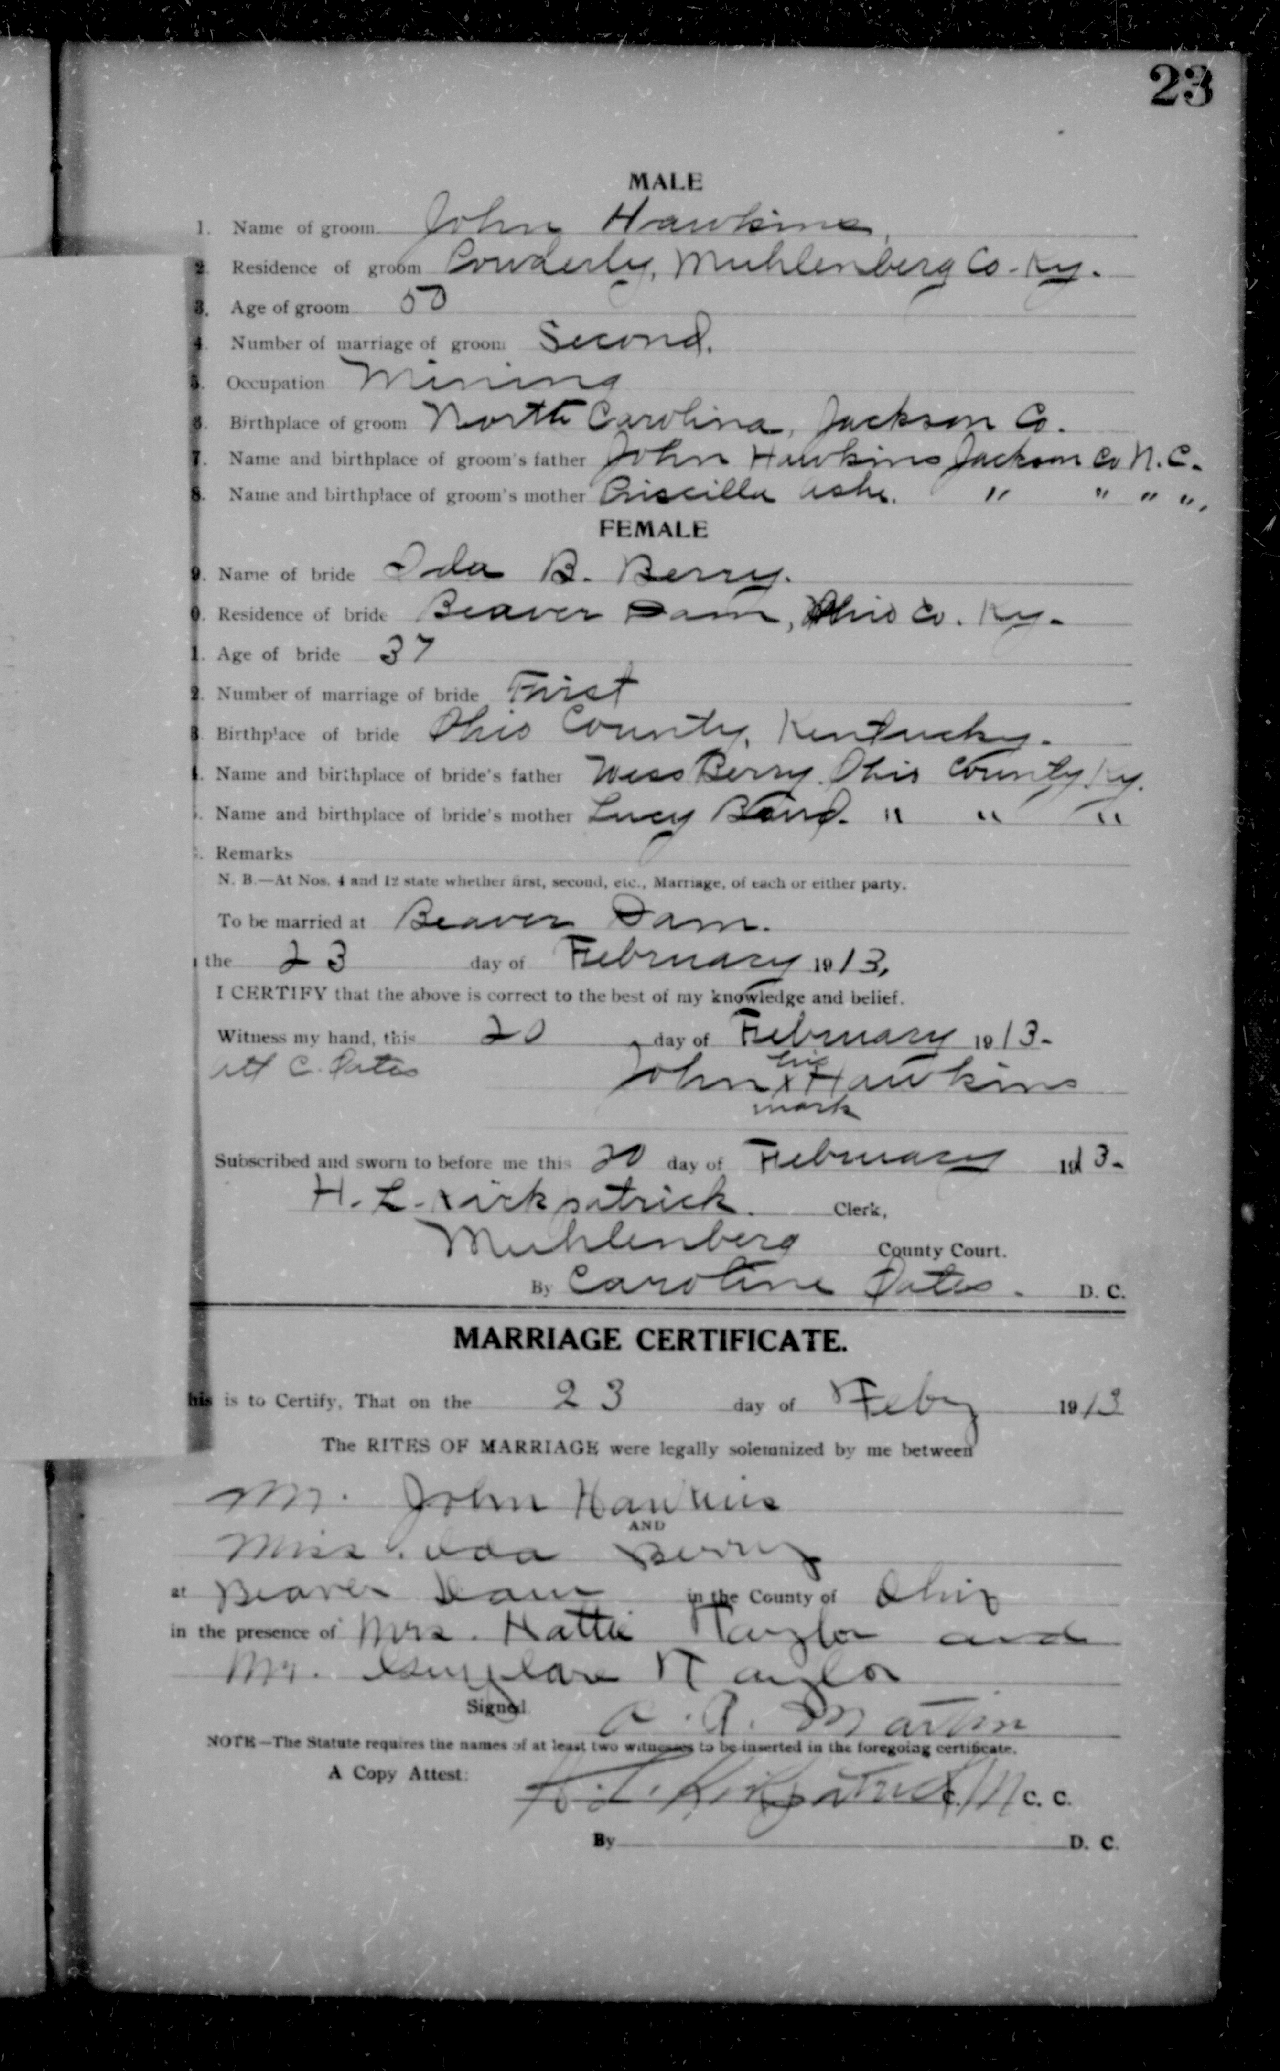 23
MALE
1. Name of groom John Hawkins,
2. Residence of groom Powderly, Muhlenberg Co. Ky.
3. Age of groom 50
4. Number of marriage of groom Second.
5. Occupation Mining
6. Birthplace of groom North Carolina, Jackson Co.
7. Name and birthplace of groom's father John Hawkins Jackson Co N.C.
8. Name and birthplace of groom's mother Priscilla Ashe. " " " ",
FEMALE
9. Name of bride Ida B. Berry.
0. Residence of bride Beaver Dam, Ohio Co. Ky.
1. Age of bride 37
2. Number of marriage of bride First
3. Birthplace of bride Ohio County, Kentucky.
4. Name and birthplace of bride's father Wess Berry. Ohio County Ky.
. Name and birthplace of bride's mother Lucy " " "
. Remarks
N. B.—At Nos. 4 and 12 state whether first, second, etc., Marriage, of each or either party.
To be married at Beaver Dam.
the 23 day of February 1913,
I CERTIFY that the above is correct to the best of my knowledge and belief.
Witness my hand, this 20 day of February 1913-
his
Att C. Oates John X Hawkins
mark
Subscribed and sworn to before me this 20 day of February 1913-
H. L. Kirkpatrick. Clerk,
Muhlenberg County Court.
By Caroline Oates. D. C.
MARRIAGE CERTIFICATE.
his is to Certify, That on the 23 day of Feby 1913
The RITES OF MARRIAGE were legally solemnized by me between
Mr. John Hawkins
AND
Miss. Ida Berry
at Beaver Dam in the County of Ohio
in the presence of Mrs. Hattie Taylor and
Mr. Taylor
Signed A. Martin
NOTE—The Statute requires the names of at least two witnesses to be inserted in the foregoing certificate.
A Copy Attest: H. L. Kirkpatrick C. M C. C.
By D. C.